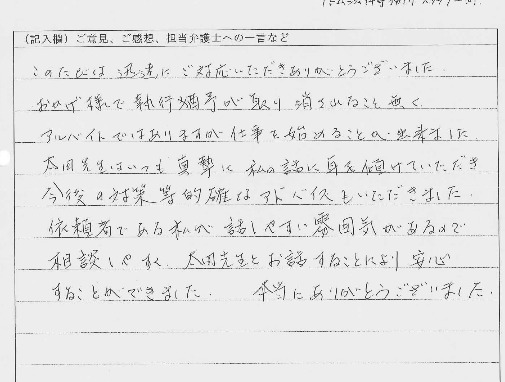 （記入欄）ご意見、ご感想、担当弁護士への一言など
このたびは 迅速に ご対応いただきありがとうございました
おかげ様で 執行猶予が 取り 消されること 無く
アルバイトではありますが 仕事を 始めることが 出来ました
太田先生はいつも 真摯に 私の話に耳を傾けていただき
今後の対策等 的確なアドバイスもいただきました.
依頼者である私が 話しやすい雰囲気があるので
相談しやすく、太田先生とお話することにより 安心
することができました. 本当にありがとうございました.